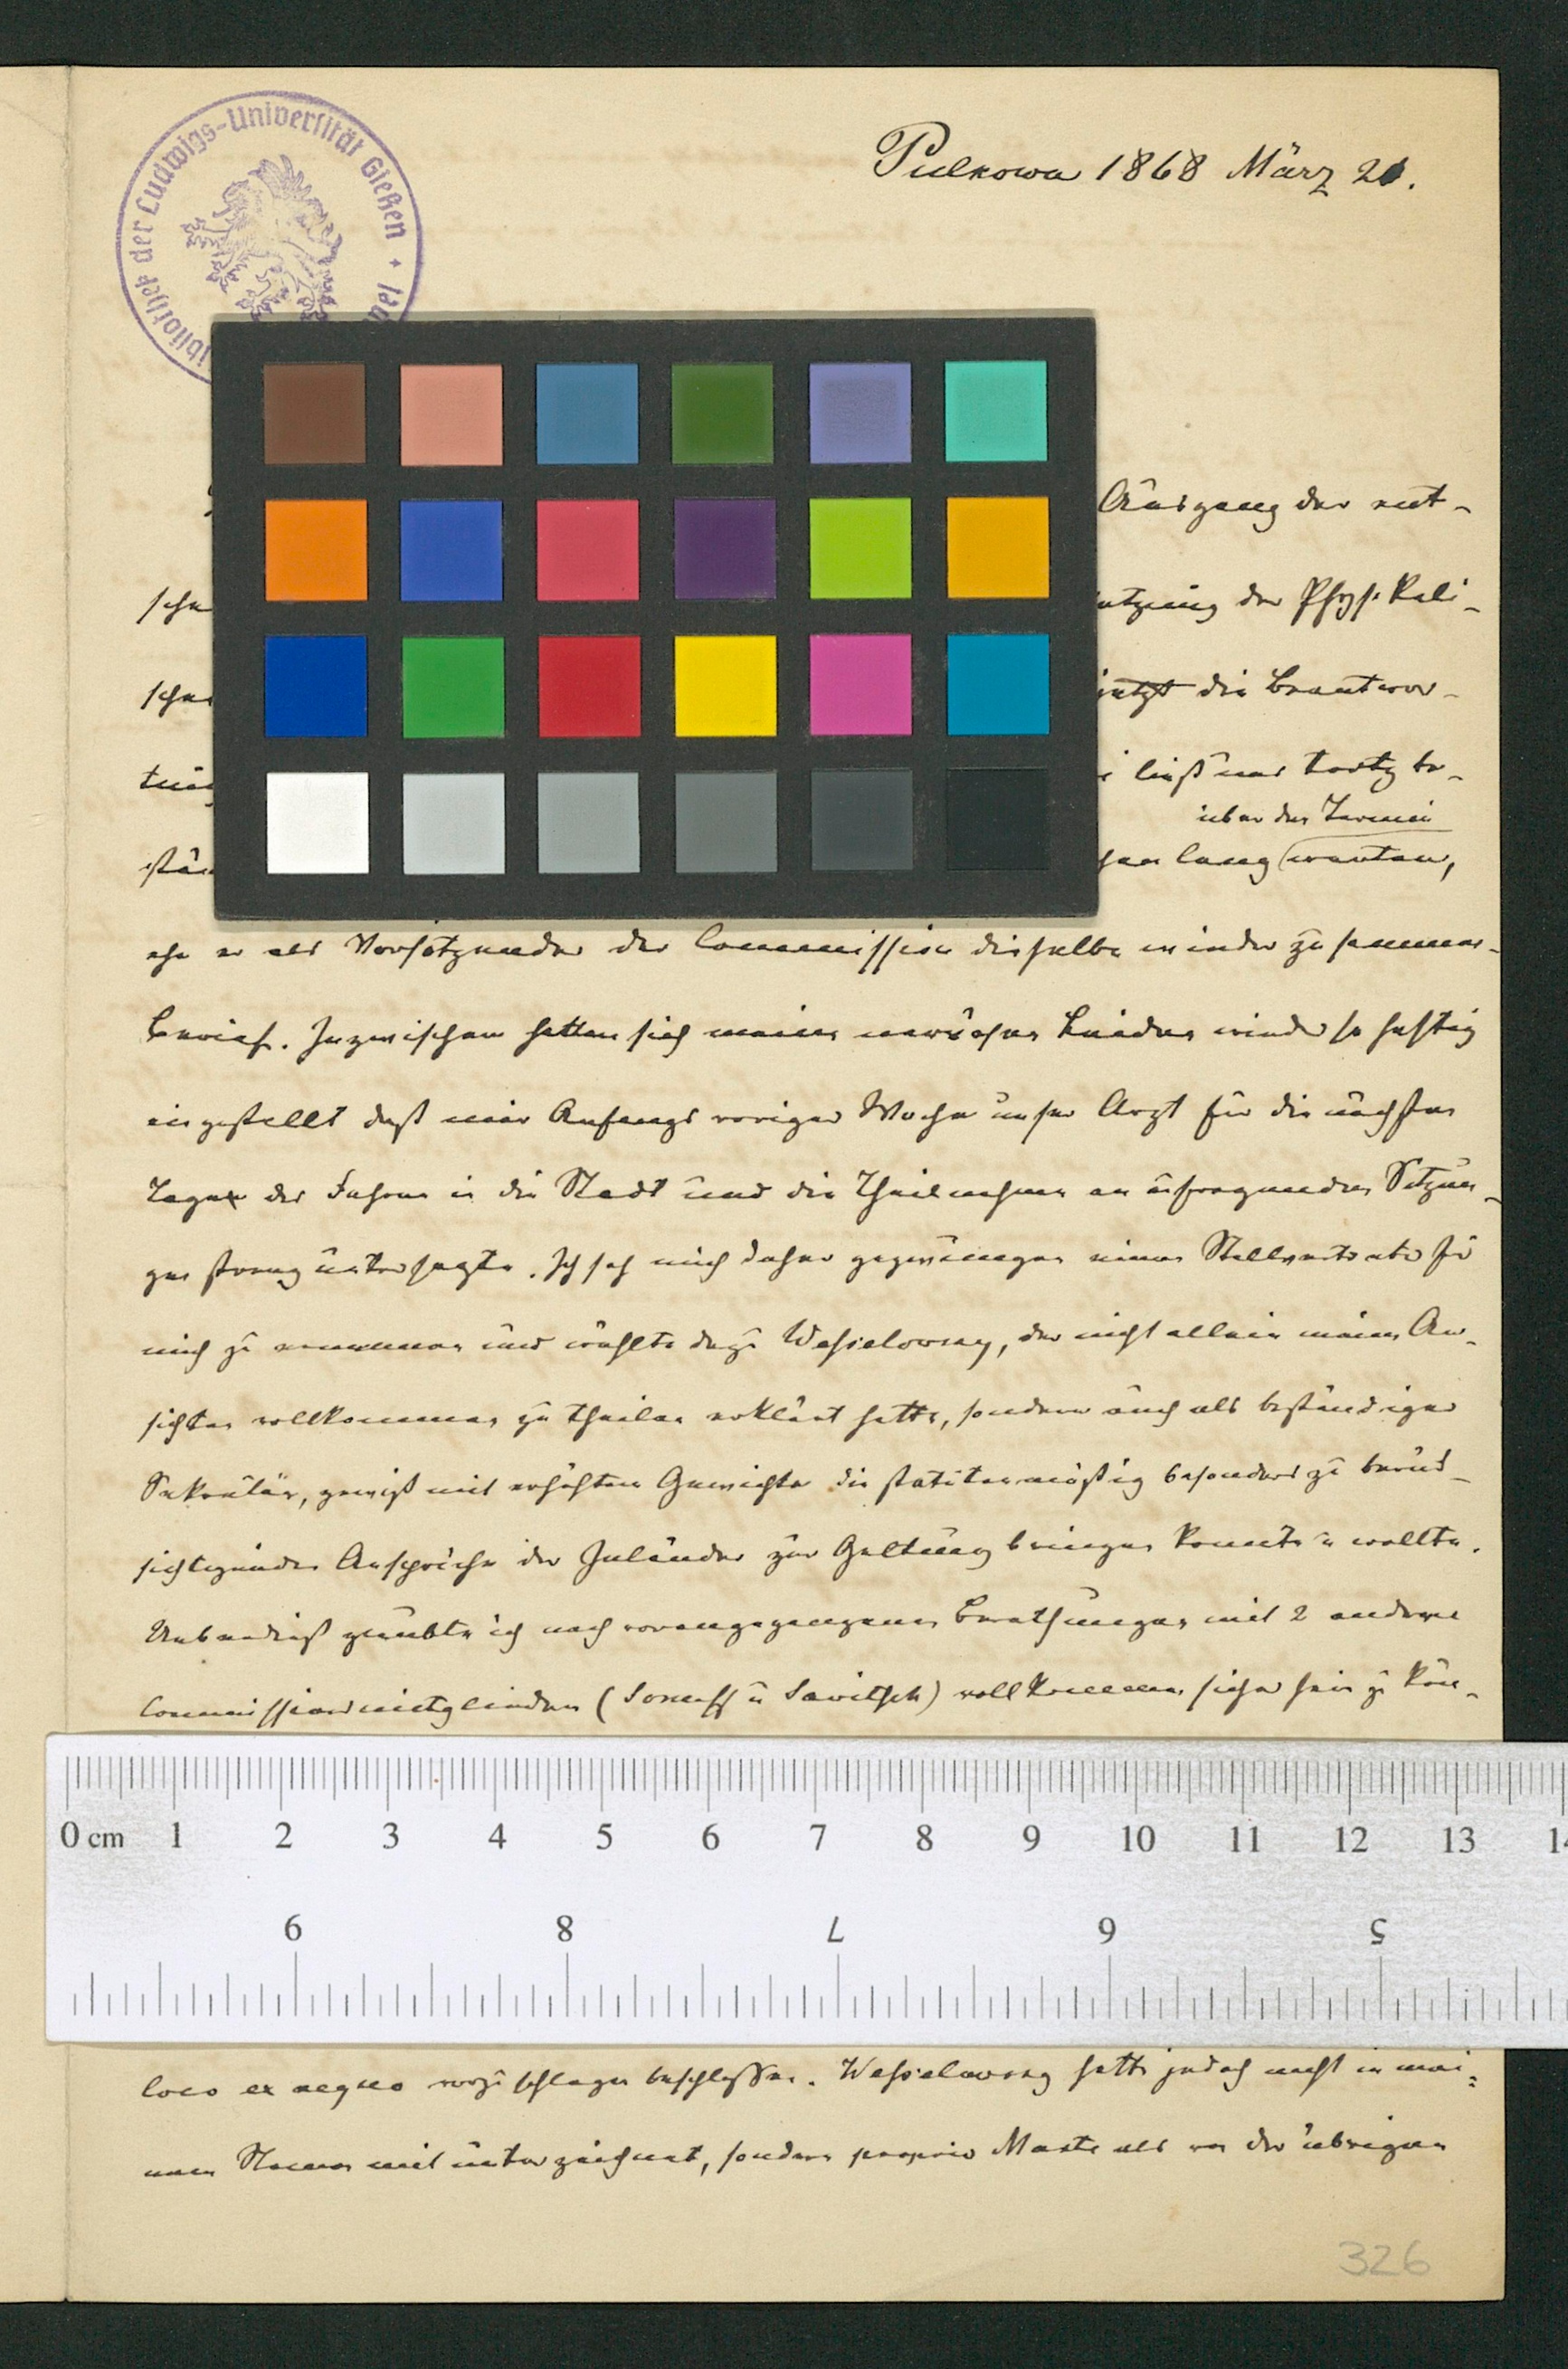 Bibliothek der Ludwigs-Universität Gießen
Pulkowa 1868 März 21.
Ausgang der ent-
sche
setzung der Physikali-
schen
jetzt die Beantwor-
tung
ließ uns trotz be-
über den Termin
stän
lang warten,
ehe er als Vorsitzender der Commission dieselbe wieder zusammen-
berief. Inzwischen hatten sich meine nervösen Leiden wieder so heftig
eingestellt daß mir Anfangs voriger Woche unser Arzt für die nächsten
Tage das Fahren in die Stadt und die Theilnahme an aufregenden Sitzun-
gen streng untersagte. Ich sah mich daher gezwungen einen Stellvertreter für
mich zu ernennen und wählte dazu Wesselowsky, der nicht allein meine An-
sichten vollkommen zu theilen erklärt hatte, sondern auch als beständiger
Sekretär, gewiß mit erhöhtem Gewichte die statutenmäßig besonders zu berück-
sichtigenden Ansprüche der Inländer zur Geltung bringen konnte u wollte.
Ueberdieß glaubte ich nach vorangegangenen Berathungen mit 2 anderen
Commissionsmitgliedern (Somoff u Sawitsch) vollkommen sicher sein zu kön-
0 cm 1 2 3 4 5 6 7 8 9 10 11 12 13 14
9 8 7 6 5
loco ex aequo vorzuschlagen beschlossen. Wesselowsky hatte jedoch nicht in mei-
nem Namen mit unterzeichnet, sondern proprio Marte als von den übrigen
326